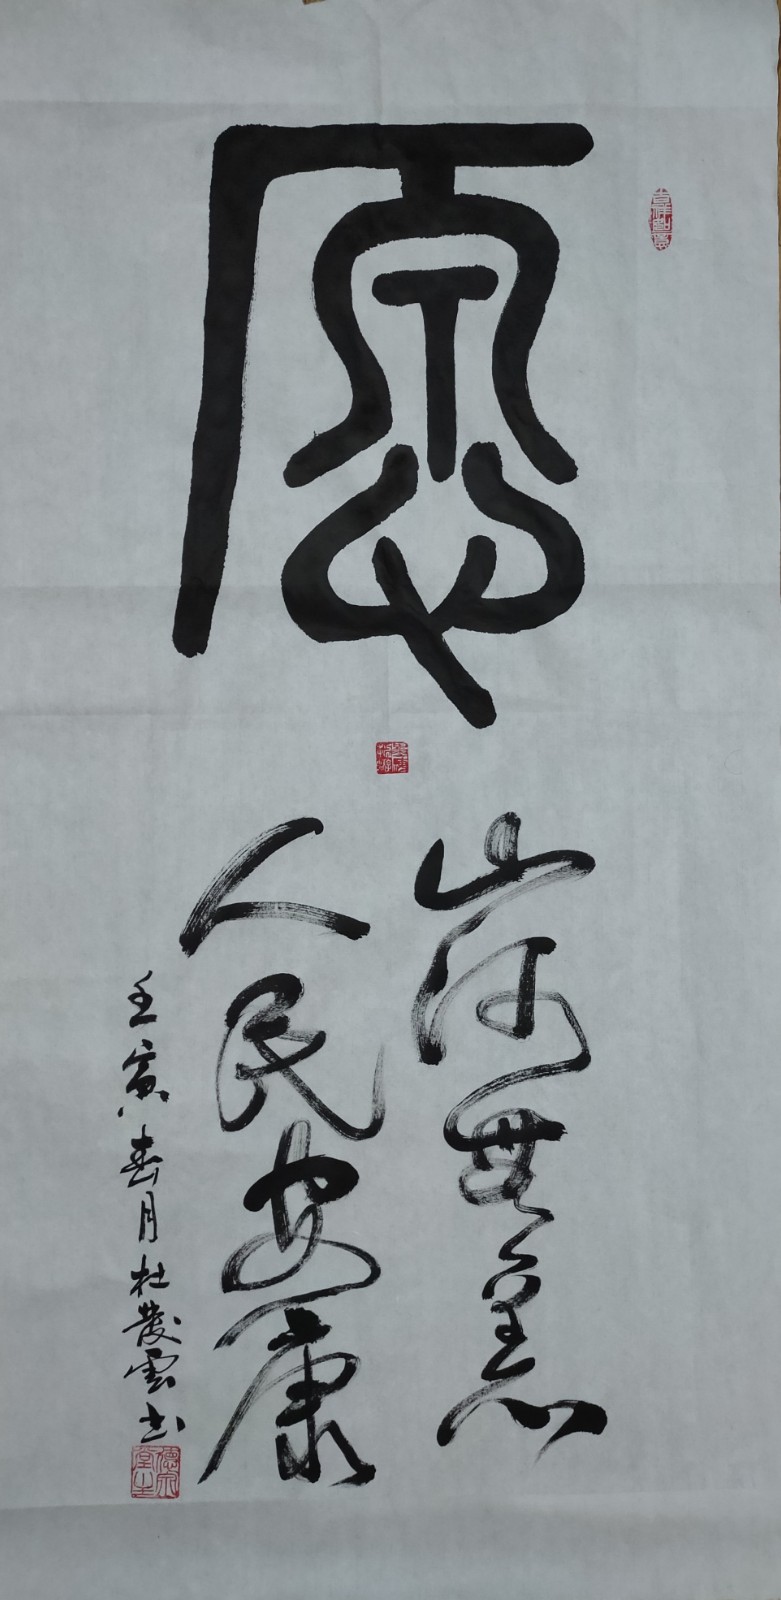 愿
山河無恙
人民安康
壬寅春月杜發雲书